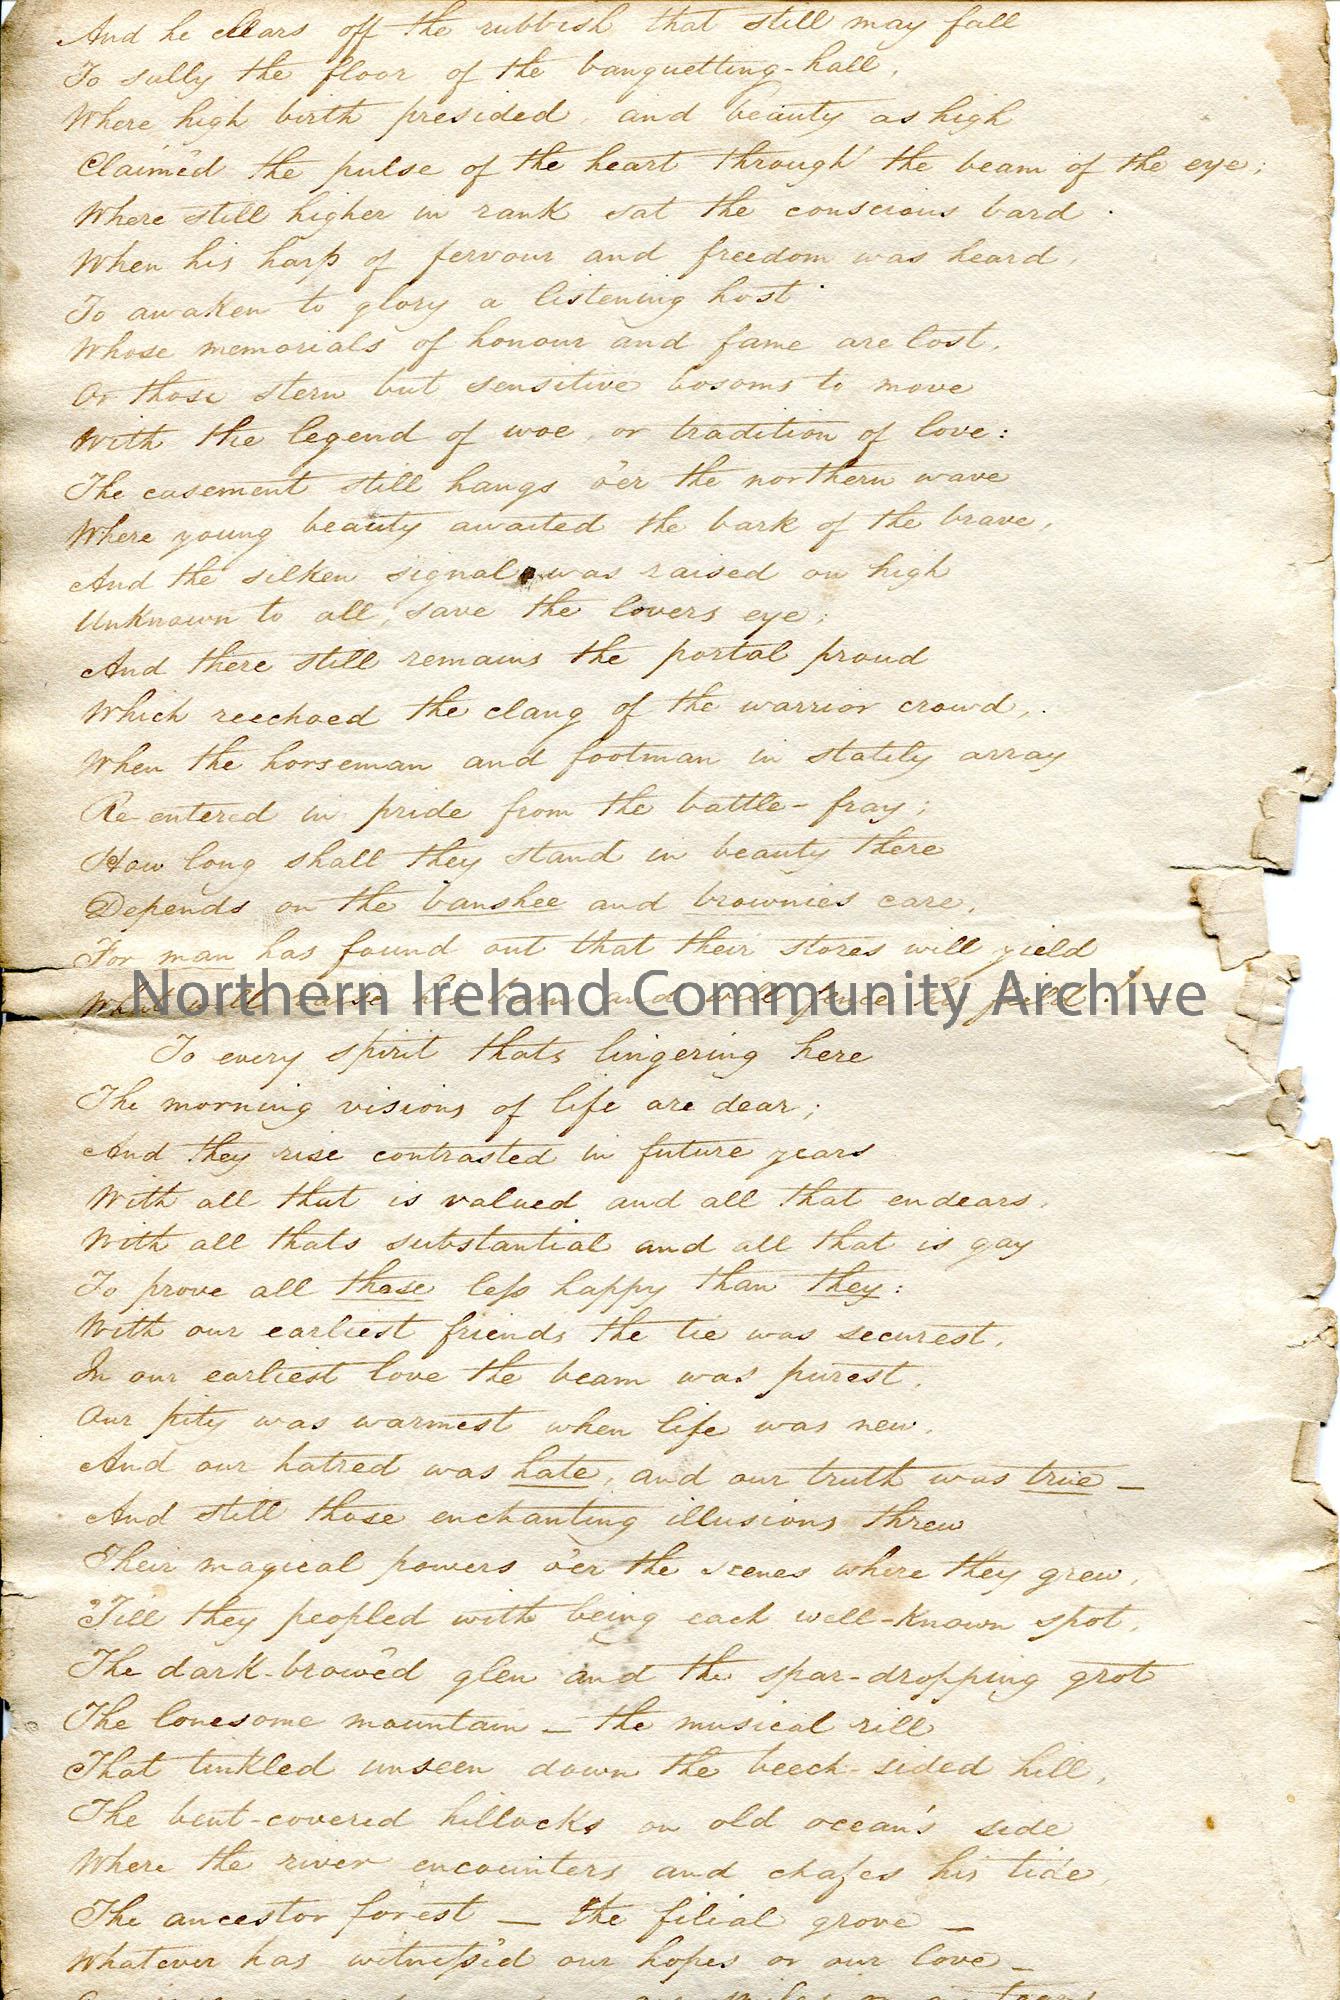 And he clears off the rubbish that still may fall
To sully the floor of the banquetting-hall,
Where high birth presided, and beauty as high
Claim'd the pulse of the heart through' the beam of the eye;
Where still higher in rank sat the conscious bard.
When his harp of fervour and freedom was heard,
To awaken to glory a listening host
Whose memorials of honour and fame are lost,
Or those stern but sensitive bosoms to move
With the legend of woe, or tradition of love:
The casement still hangs o'er the northern wave
Where young beauty awaited the bark of the brave,
And the silken signal was raised on high
Unknown to all, save the lovers eye;
And there still remains the portal proud
Which reechoed the clang of the warrior crowd,
When the horseman and footman in stately array
Re-entered in pride from the battle-fray;
How long shall they stand in beauty there
Depends on the banshee and brownies care,
For man has found out that their stores will yield
What will raise his barn and will fence his field! —
Northern Ireland Community Archive
To every spirit thats lingering here
The morning visions of life are dear;
And they rise contrasted in future years
With all that is valued and all that endears,
With all thats substantial and all that is gay
To prove all these less happy than they:
With our earliest friends the tie was securest,
In our earliest love the beam was purest,
Our pity was warmest when life was new,
And our hatred was hate, and our truth was true —
And still those enchanting illusions threw
Their magical powers o'er the scenes where they grew,
'Till they peopled with being each well-known spot,
The dark-brow'd glen and the spar-dropping grot
The lonesome mountain — the musical rill
That tinkled unseen down the beech-sided hill,
The bent-covered hillocks on old ocean's side
Where the river encounters and chafes his tide,
The ancestor forest — the filial grove —
Whatever has witness'd our hopes or our love —